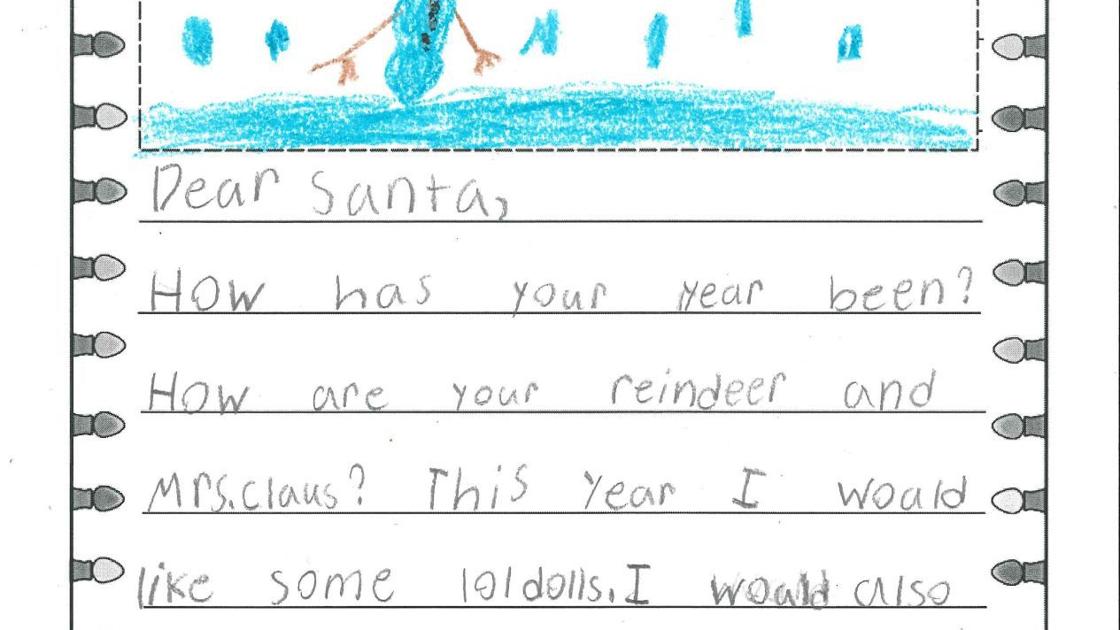 Dear Santa,
How has your year been?
How are your reindeer and
Mrs.claus? This year I would
like some lol dolls. I would also